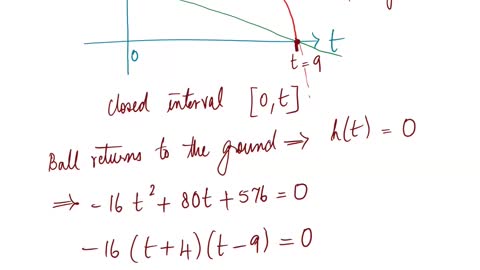 t
0
t = 9
closed interval [0,t]
Ball returns to the ground ⇒ h(t) = 0
⇒ -16 t² + 80t + 576 = 0
-16 (t+4) (t-9) = 0